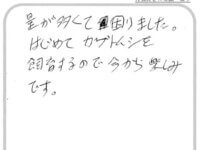 量が多くて困りました。
はじめてカブトムシを
飼育するので今から楽しみ
です。